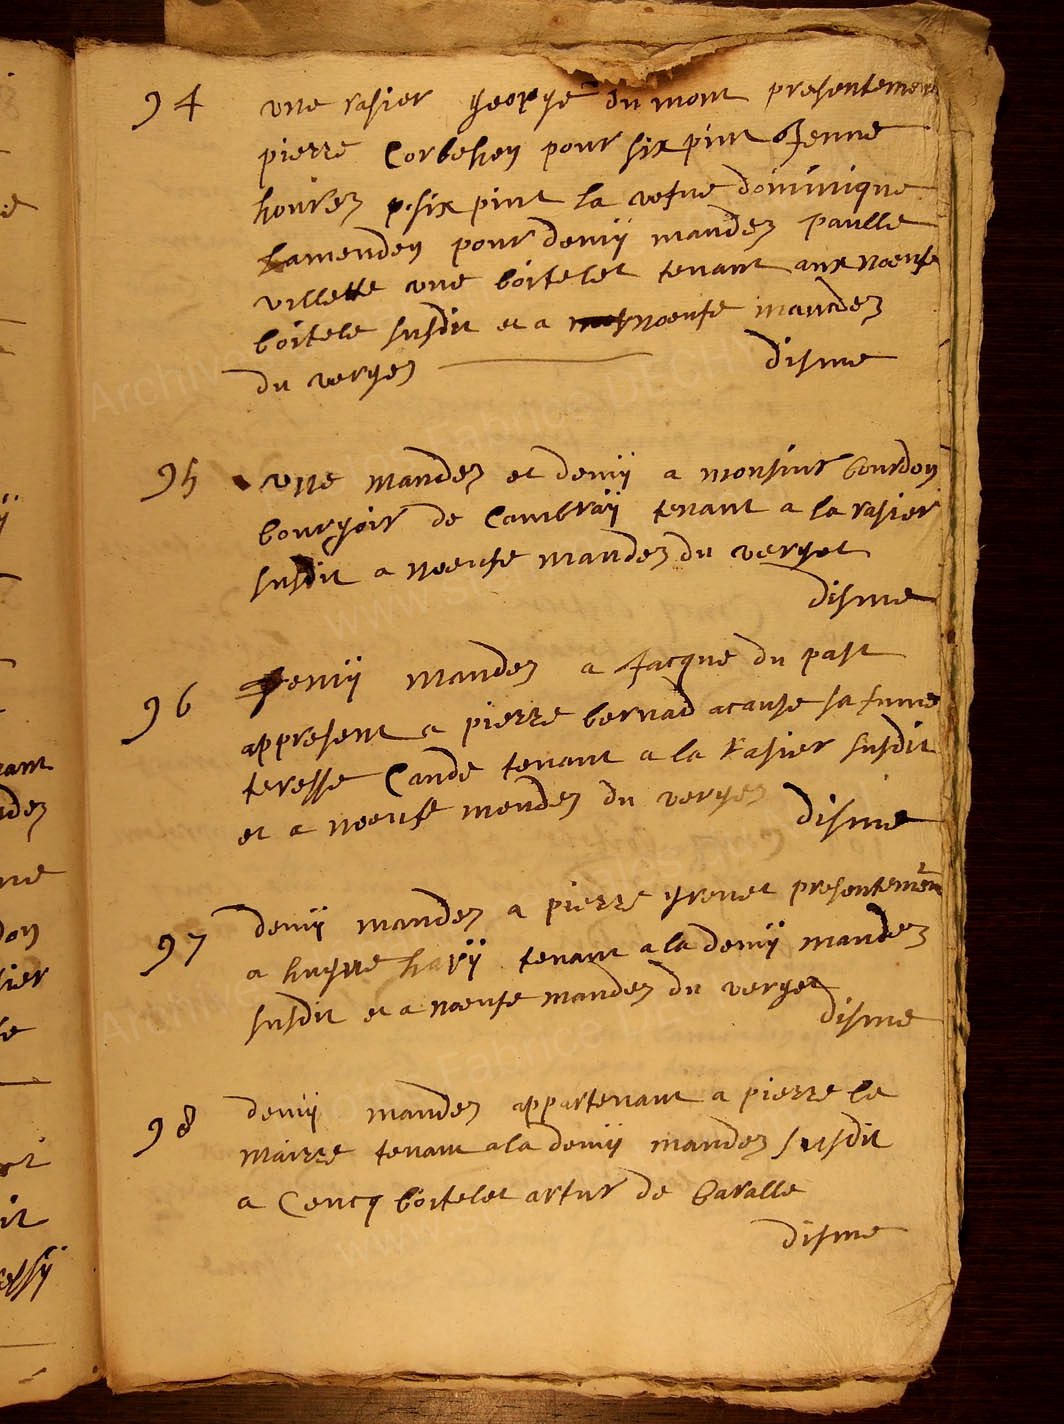 94 une rasier george du mont presentement
pierre Corbehen pour six pint Jenne
hoirez p. six pint la vefue dominique
Lamenden pour demÿ mandez paulle
villette une boitelet tenant aux noeufe
boitele susdit et a noeufe mandez
du verges disme
95 une mandez et demÿ a monsiur bourdon
bourgoir de Cambraÿ tenant a la rasier
susdit a noeufe mandez du verget
disme
96 demÿ mandez a Jacque du past
appresent a pierre bernad acause sa fume
teresse Cande tenant a la rasier susdit
et a noeufe mendez du verges disme
97 demÿ mandez a pierre grenet presentemen
a hugue havÿ tenant a la demÿ mandez
susdit et a noeufe mandez du verget
disme
98 demÿ mandez appartenant a pierre le
mairre tenant a la demÿ mandez susdit
a Cencq boitelet artur de baralle
disme